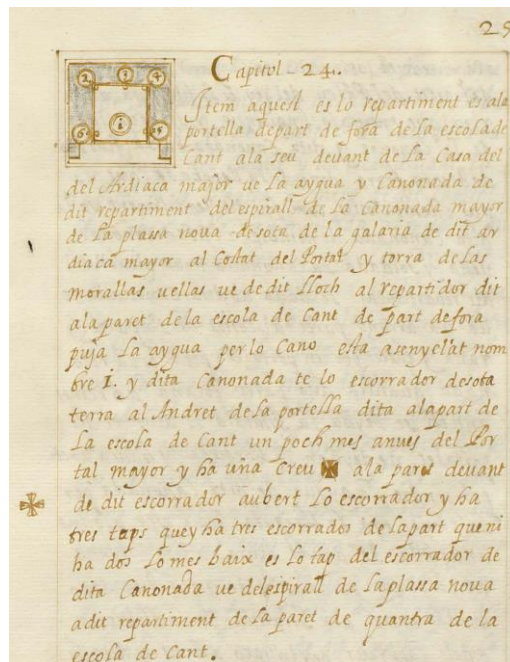 25
Capitol 24.
2 3 4
6 1 5
Item aquest es lo repartiment es ala
portella depart de fora de la escola de
Cant ala seu devant de la Casa del
del Ardiaca major ve la aygua y Canonada de
dit repartiment del espirall de la Canonada mayor
de la plassa nova desota de la galaria de dit ar
diaca mayor al Costat del Portal y torra de las
morallas vellas ve de dit lloch al repartidor dit
ala paret de la escola de Cant de part defora
puja la aygua per lo Cano esta asenyelat nom
bre 1. y dita Canonada te lo escorrador desota
terra al Andret de la portella dita alapart de
La escola de Cant un poch mes anues del Por
tal mayor y ha vina Creu ala paret devant
de dit escorrador aubert lo escorrador y ha
tres taps quey ha tres escorrados de lapart queni
ha dos lo mes baix es lo tap del escorrador de
dita Canonada ve delespirall de laplassa nova
adit repartiment de la paret de quantra de la
escola de Cant.